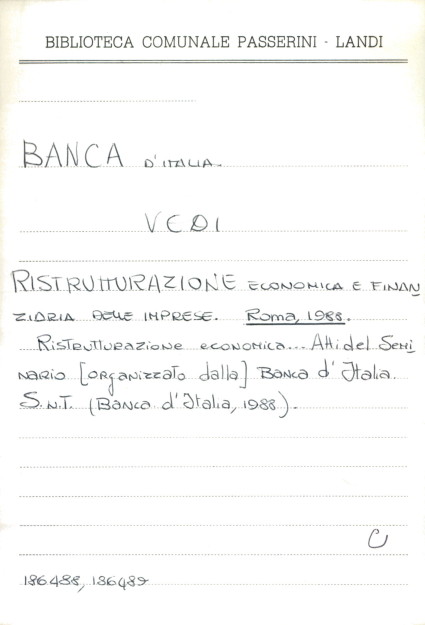 BIBLIOTECA COMUNALE PASSERINI - LANDI
BANCA D'ITALIA.
VEDI
RISTRUTTURAZIONE ECONOMICA E FINAN
ZIARIA DELLE IMPRESE. Roma, 1988.
Ristrutturazione economica... Atti del Semi
nario [organizzato dalla] Banca d'Italia.
S.n.t. (Banca d'Italia, 1988).
C
186488, 186489